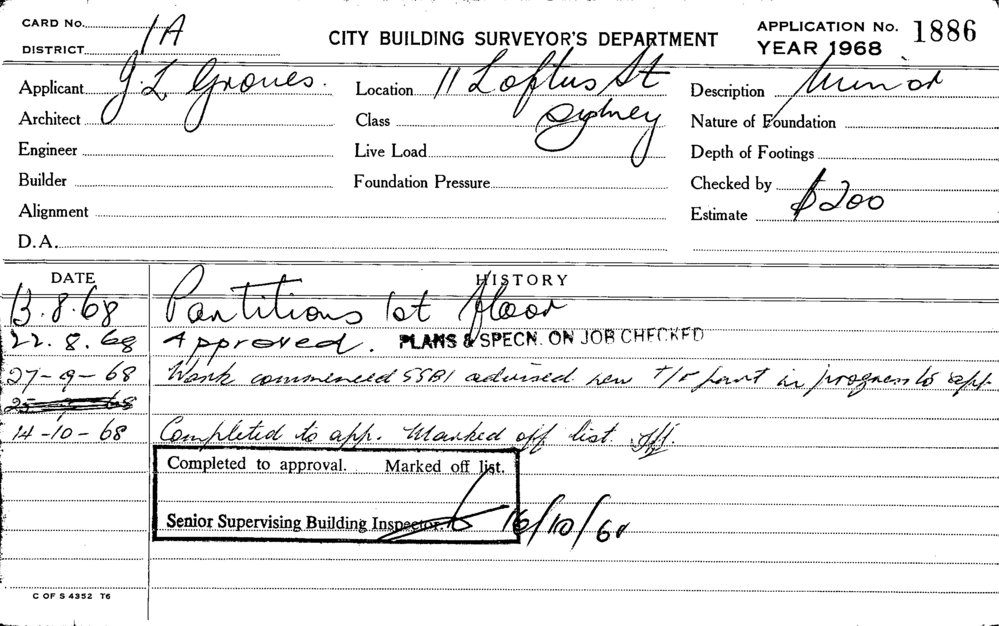 CARD No. 1A
DISTRICT
CITY BUILDING SURVEYOR'S DEPARTMENT
APPLICATION No. 1886
YEAR 1968
Applicant J. L Groves.
Location 11 Loftus St
Description Minor
Architect
Class Sydney
Nature of Foundation
Engineer
Live Load
Depth of Footings
Builder
Foundation Pressure
Checked by
Alignment
Estimate $200
D.A.
DATE
HISTORY
13.8.68 Partitions 1st floor
22.8.68 Approved. PLANS & SPECN. ON JOB CHECKED
27-9-68 Work commenced SSBI advised new in progress to app.
14-10-68 Completed to app. Marked off list.
Completed to approval. Marked off list.
Senior Supervising Building Inspector 16/10/68
C OF S 4352 T6